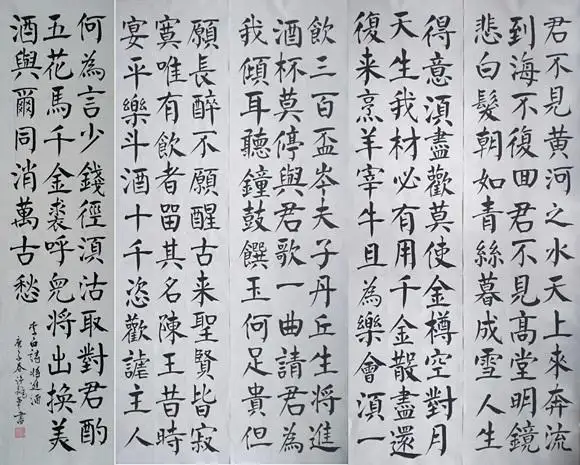 君不見黄河之水天上來奔流
到海不復回君不見高堂明鏡
悲白髮朝如青絲暮成雪人生
得意須盡歡莫使金樽空對月
天生我材必有用千金散盡還
復来烹羊宰牛且為樂會須一
飲三百盃岑夫子丹丘生將進
酒杯莫停與君歌一曲請君為
我傾耳聽鐘鼓饌玉何足貴但
願長醉不願醒古来聖賢皆寂
寞唯有飲者留其名陳王昔時
宴平樂斗酒十千恣歡謔主人
何為言少錢徑須沽取對君酌
五花馬千金裘呼兒将出換美
酒與爾同消萬古愁
李白詩將進酒
庚子春許書